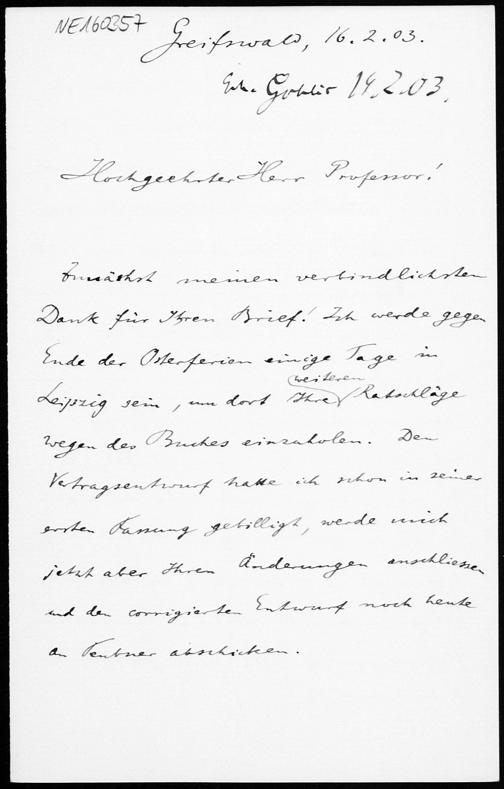 NE160357
Greifswald, 16.2.03.
19.2.03.
Hochgeehrter Herr Professor!
Zunächst meinen verbindlichsten
Dank für Ihren Brief! Ich werde gegen
Ende der Osterferien einige Tage in
Leipzig sein, um dort Ihre weiteren Ratschläge
wegen des Buches einzuholen. Den
Vertragsentwurf hatte ich schon in seiner
ersten Fassung gebilligt, werde mich
jetzt aber Ihren Änderungen anschliessen
und den corrigierten Entwurf noch heute
an Teubner abschicken.